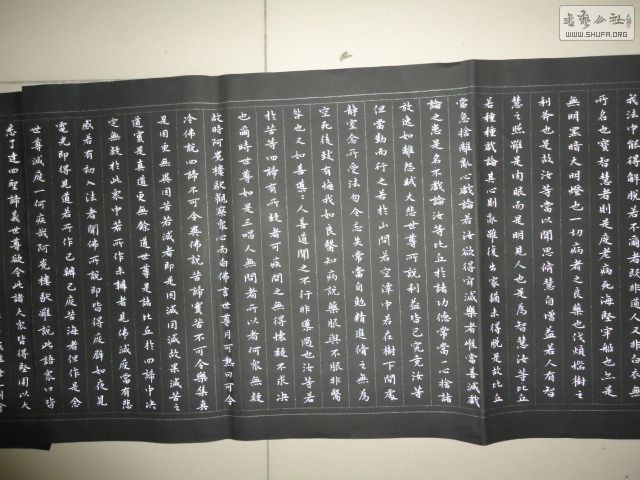 我法中能得解脫若不爾者既非道人又非白衣無
所名也實智慧者則是度老病死海堅牢船也亦是
無明黑暗大明燈也一切病者之良藥也伐煩惱樹之
利斧也是故汝等當以聞思修慧自增益若人有智
慧之照雖是肉眼而是明見人也是為智慧汝等比丘
若種種戲論其心則亂雖復出家猶未得脫是故比丘
當急捨離亂心戲論若汝欲得寂滅樂者唯當善滅戲
論之患是名不戲論汝等比丘於諸功德常當一心捨諸
放逸如離怨賊大悲世尊所說利益皆已究竟汝等
但當勤而行之若於山間若空澤中若在樹下閒處
靜室念所受法勿令忘失常當自勉精進修之無為
空死後致有悔我如良醫知病說藥服與不服非醫
咎也又如善導導人善道聞之不行非導過也汝等若
於苦等四諦有所疑者可疾問之無得懷疑不求決
也爾時世尊如是三唱人無問者所以者何眾無疑
故時阿㝹樓馱觀察眾心而白佛言世尊月可熱日可令
冷佛說四諦不可令異佛說苦諦實苦不可令樂集真
是因更無異因苦若滅者即是因滅因滅故果滅滅苦之
道實是真道更無餘道世尊是諸比丘於四諦中決
定無疑於此眾中若所作未辦者見佛滅度當有悲
感若有初入法者聞佛所說即皆得度譬如夜見
電光即得見道若所作已辦已度苦海者但作是念
世尊滅度一何疾哉阿㝹樓馱雖說此語眾中皆
悉了達四聖諦義世尊欲令此諸大眾皆得堅固以大
書藝公社
WWW.SHUFA.ORG